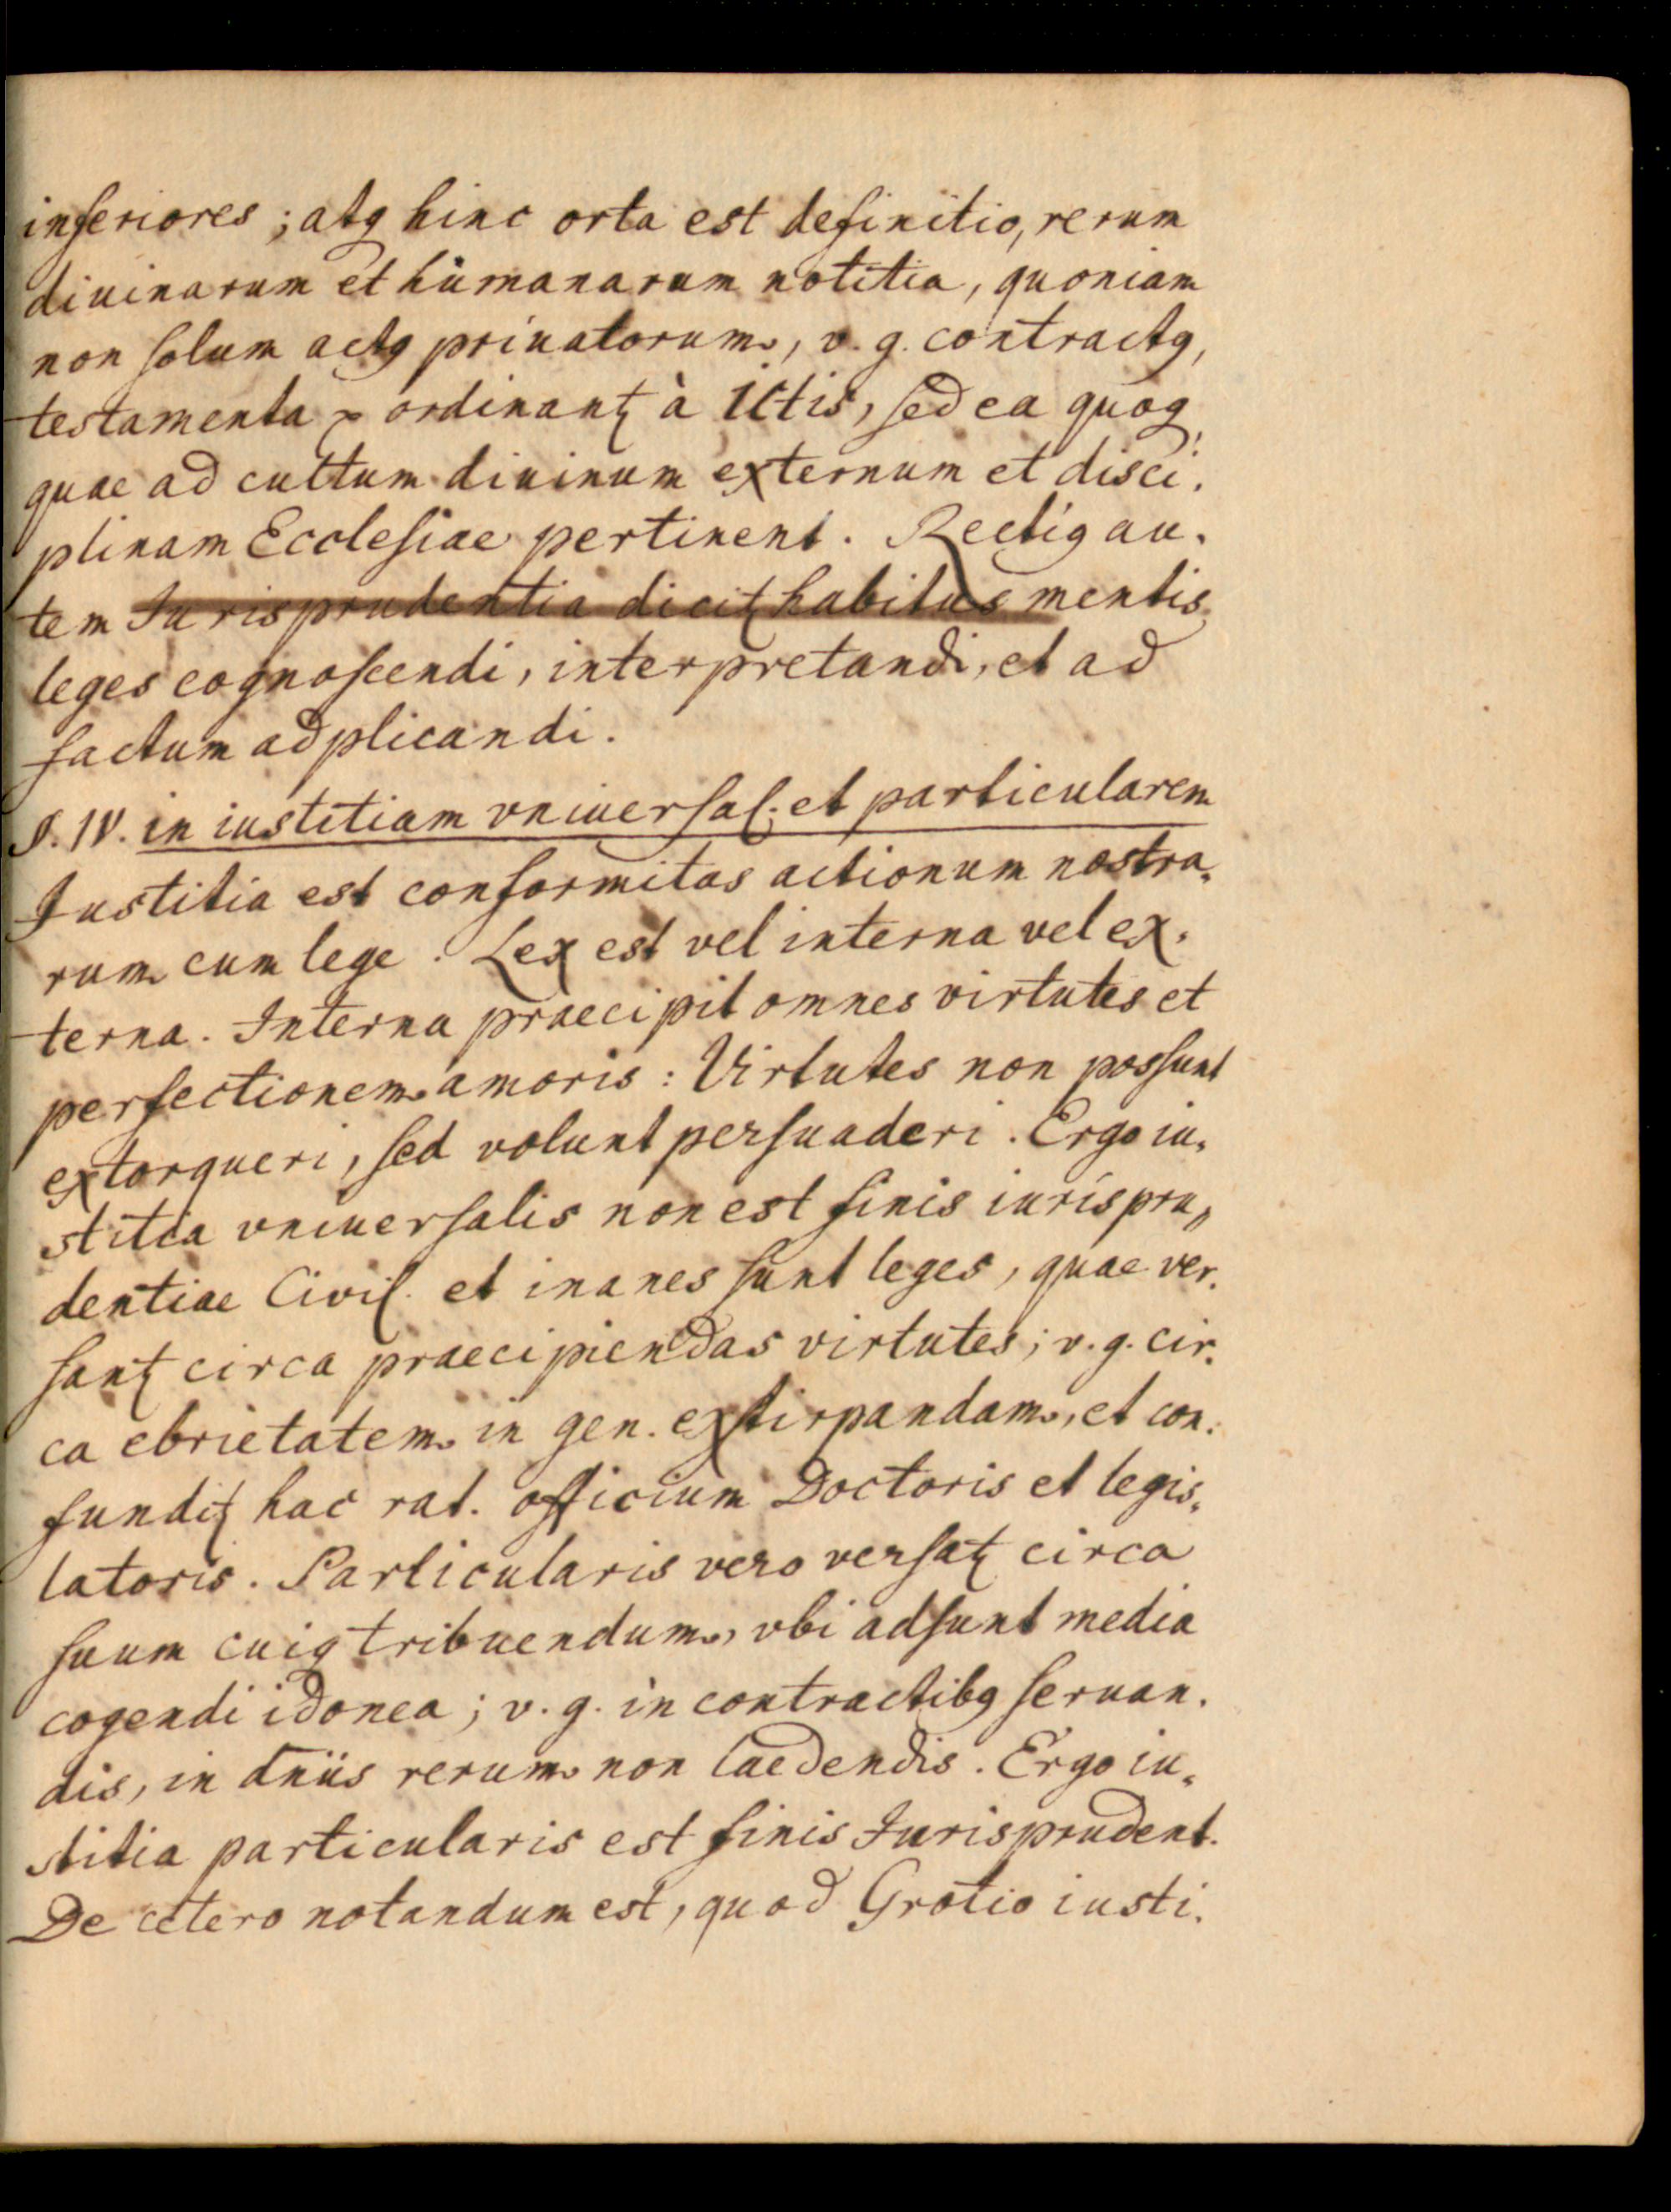 inferiores; atq hinc orta est definitio, rerum
diuinarum et humanarum notitia, quoniam
non solum actq priuatorum, v. g. contractq,
testamenta ordinanꝶ à ICtis, sed ea quoq,
quae ad cultum diuinum externum et disci.
plinam Ecclesiae pertinent. Rectiq au.
tem Jurisprudentia diciꝶ habitus mentis
leges cognoscendi, interpretandi, et ad
factum adplicandi.
§. IV. in iustitiam vniuersal. et particularem
Justitia est conformitas actionum nostra.
rum cum lege. Lex est vel interna vel ex.
terna. Interna praecipit omnes virtutes et
perfectionem amoris: Virtutes non possunt
extorqueri, sed volunt persuaderi. Ergo iu.
stitia vniuersalis non est finis iurispru„
dentiae Civil. et inanes sunt leges, quae ver.
sanꝶ circa praecipiendas virtutes; v. g. cir.
ca ebrietatem in gen. extirpandam, et con.
fundiꝶ hac rat. officium Doctoris et legis.
latoris. Particularis vero versaꝶ circa
suum cuiq tribuendum, vbi adsunt media
cogendi idonea; v. g. in contractibq seruan.
dis, in dn̄iis rerum non laedendis. Ergo iu.
stitia particularis est finis Jurisprudent.
De cetero notandum est, quod Grotio iusti.